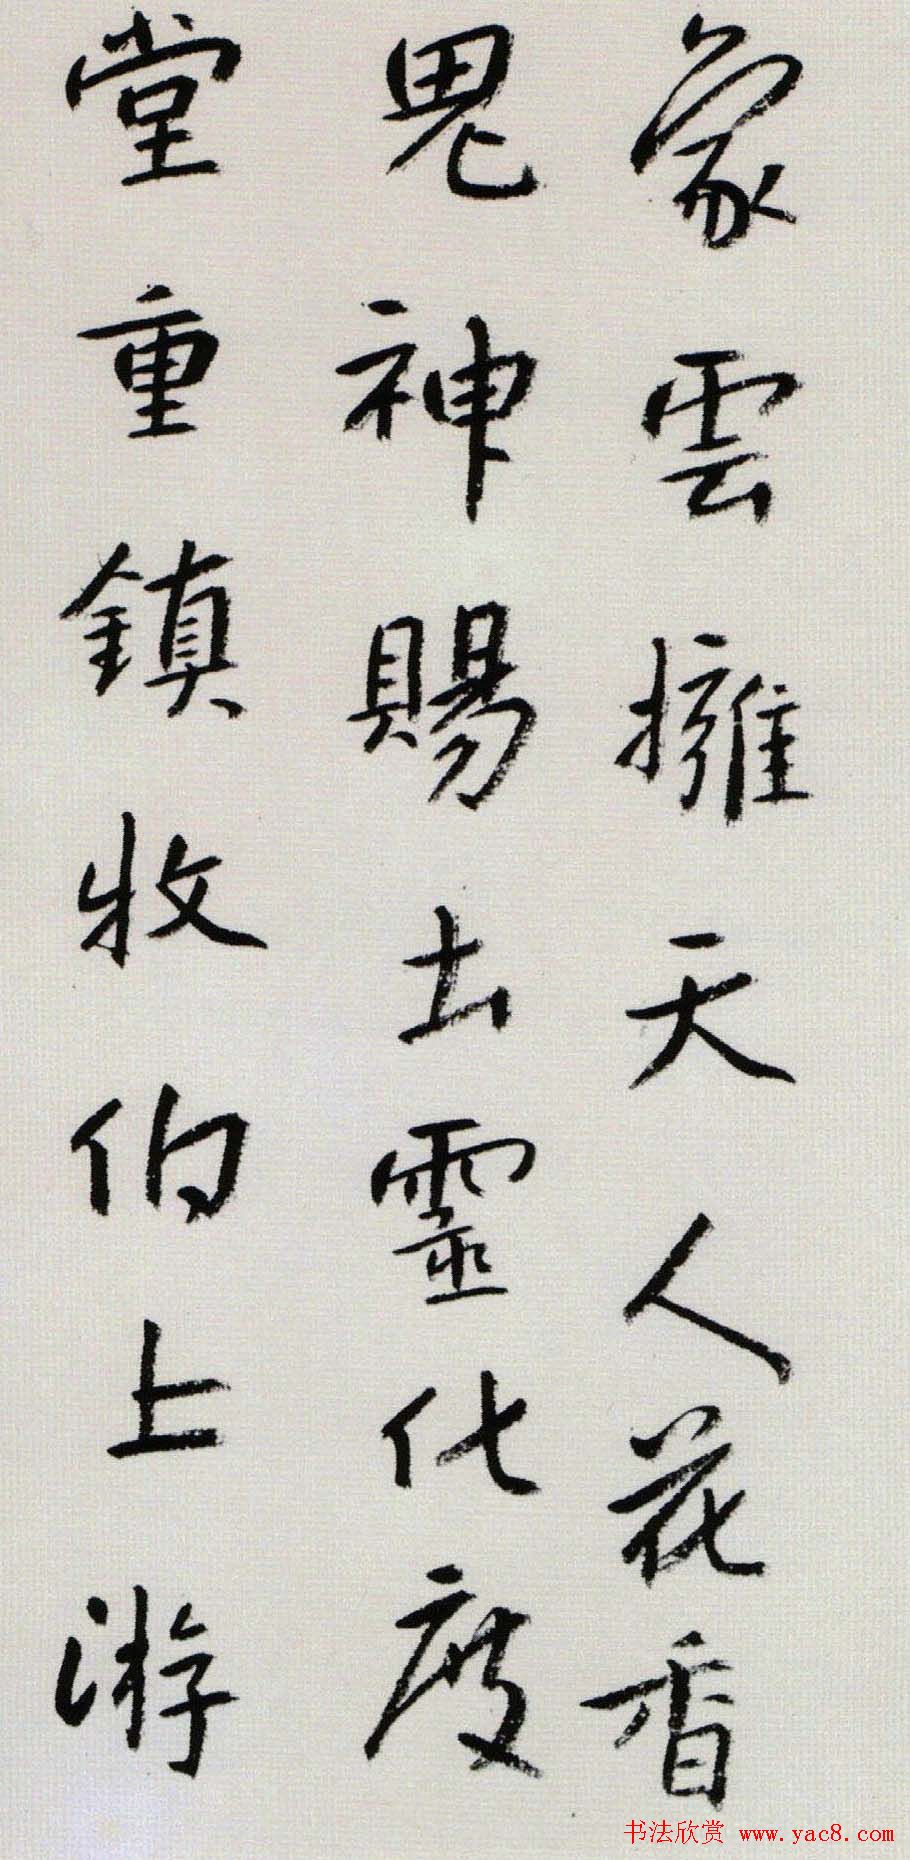 象雲擁天人花香
鬼神賜土靈化度
堂重鎮牧伯上游
书法欣赏 www.yac8.com